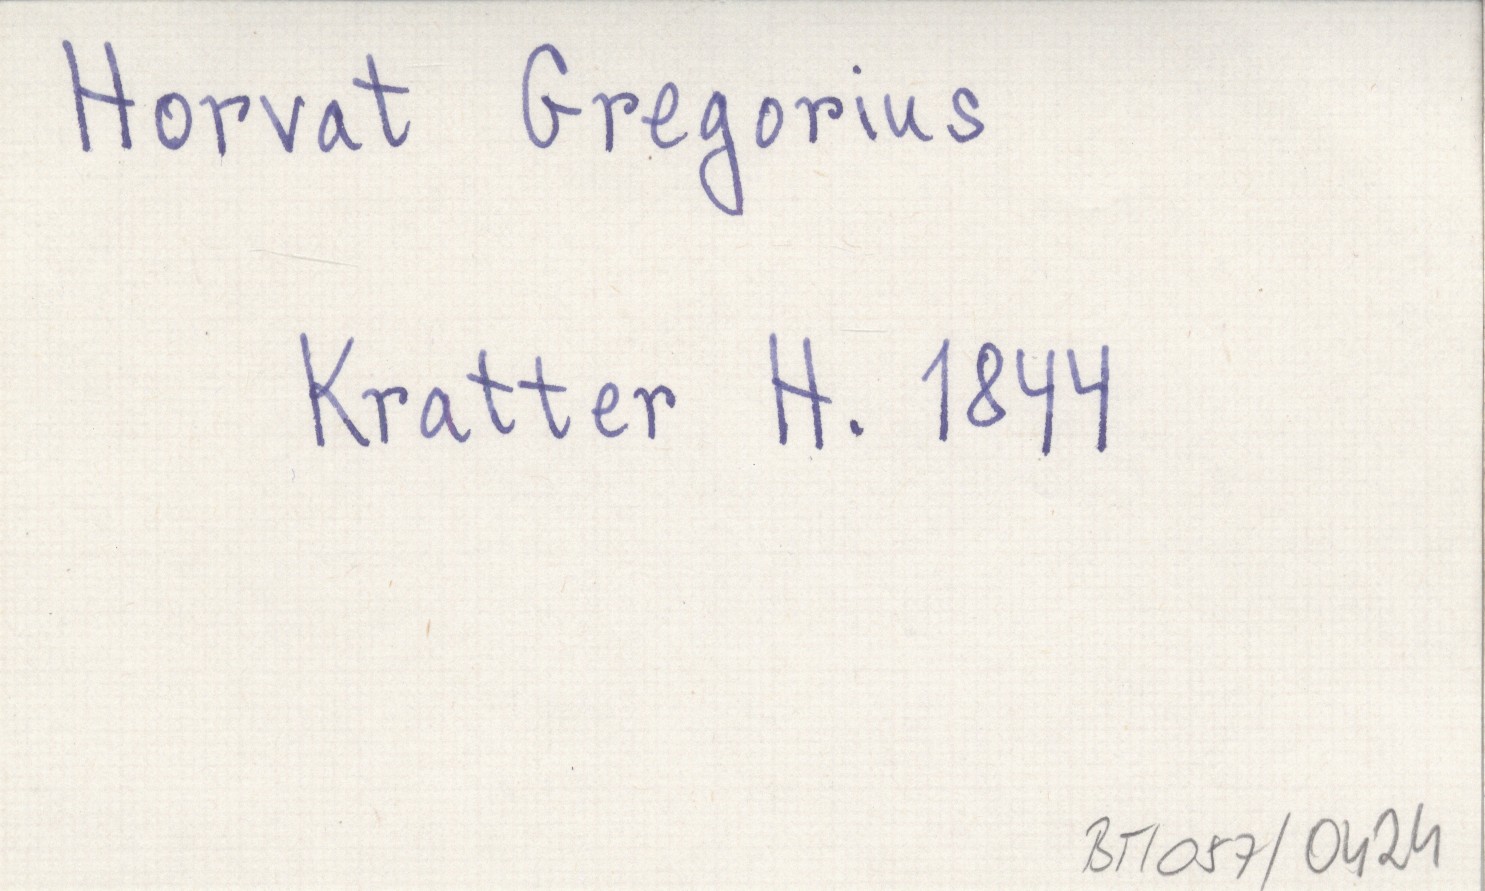 Horvat Gregorius
Kratter H. 1844
BTI057/0424